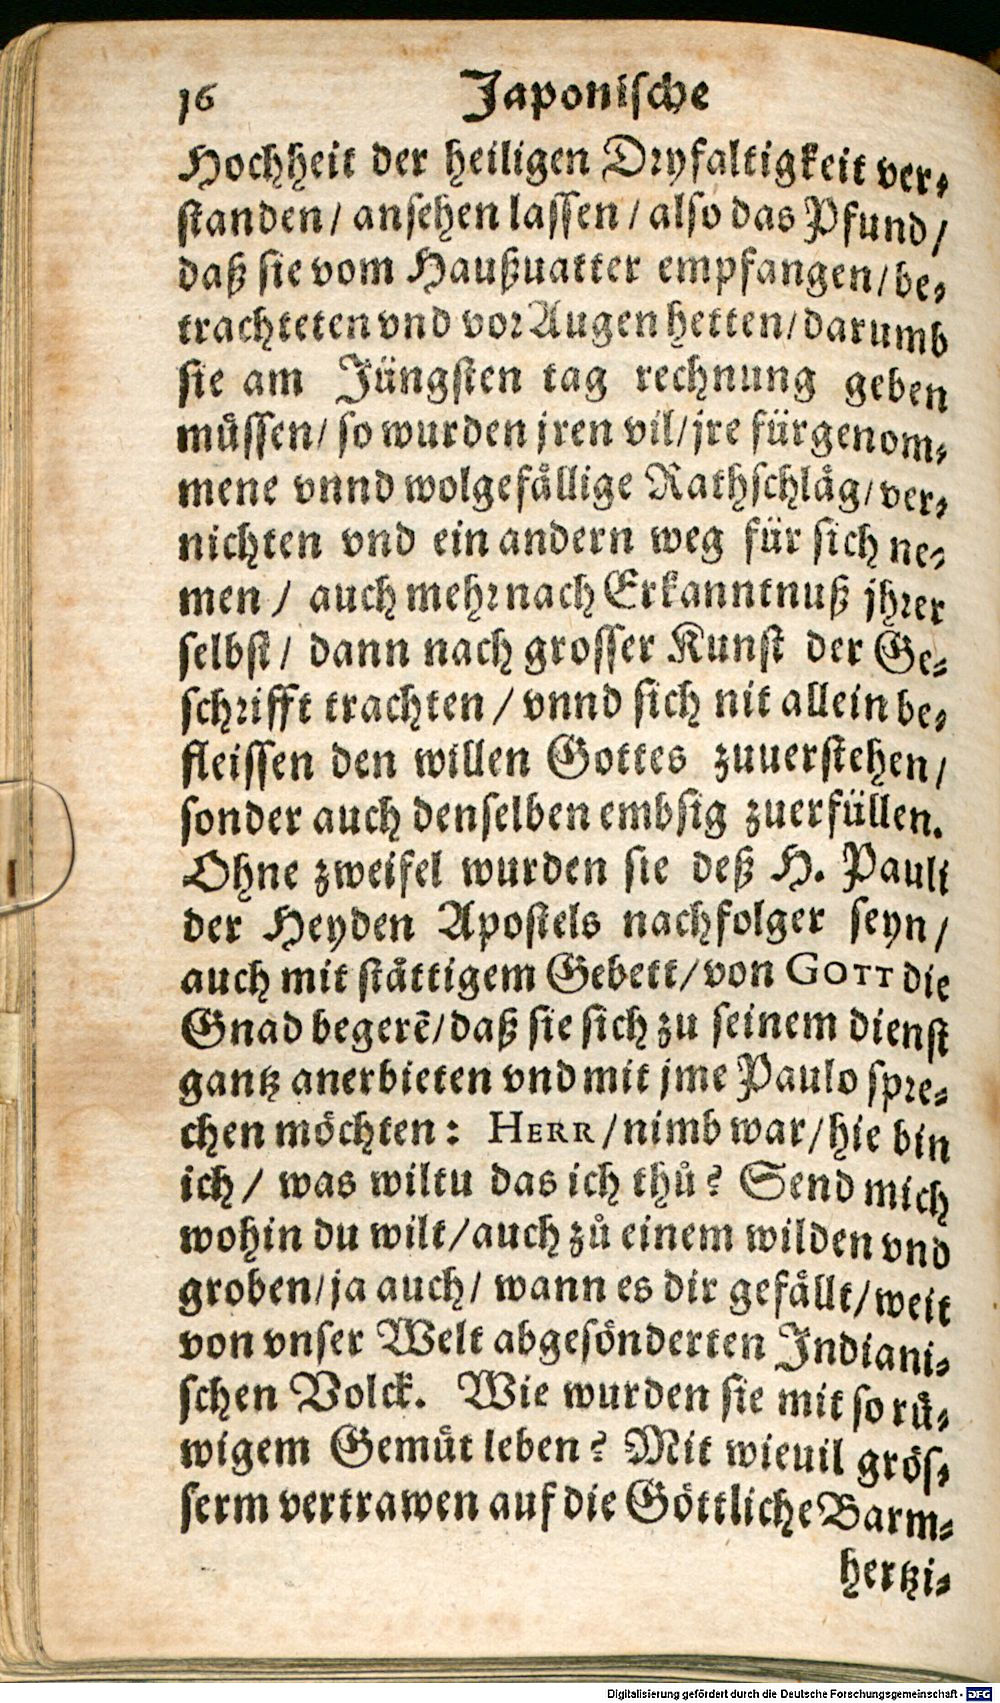 16 Japonische
Hochheit der heiligen Dryfaltigkeit ver⸗
standen/ ansehen lassen/ also das Pfund/
daß sie vom Haußuatter empfangen/ be⸗
trachteten vnd vor Augen hetten/ darumb
sie am Jüngsten tag rechnung geben
muͤssen/ so wurden jren vil/ jre fürgenom⸗
mene vnnd wolgefaͤllige Rathschlaͤg/ ver⸗
nichten vnd ein andern weg für sich ne⸗
men/ auch mehr nach Erkanntnuß jhrer
selbst/ dann nach grosser Kunst der Ge⸗
schrifft trachten/ vnnd sich nit allein be⸗
fleissen den willen Gottes zuuerstehen/
sonder auch denselben embsig zuerfüllen.
Ohne zweifel wurden sie deß H. Pauli
der Heyden Apostels nachfolger seyn/
auch mit staͤttigem Gebett/ von GOTT die
Gnad begerẽ/ daß sie sich zu seinem dienst
gantz anerbieten vnd mit jme Paulo spre⸗
chen moͤchten: HERR/ nimb war/ hie bin
ich/ was wiltu das ich thuͦ? Send mich
wohin du wilt/ auch zuͦ einem wilden vnd
groben/ ja auch/ wann es dir gefaͤllt/ weit
von vnser Welt abgesoͤnderten Indiani⸗
schen Volck. Wie wurden sie mit so ruͤ⸗
wigem Gemuͤt leben? Mit wieuil groͤs⸗
serm vertrawen auf die Goͤttliche Barm⸗
hertzi⸗
Digitalisierung gefördert durch die Deutsche Forschungsgemeinschaft - DFG